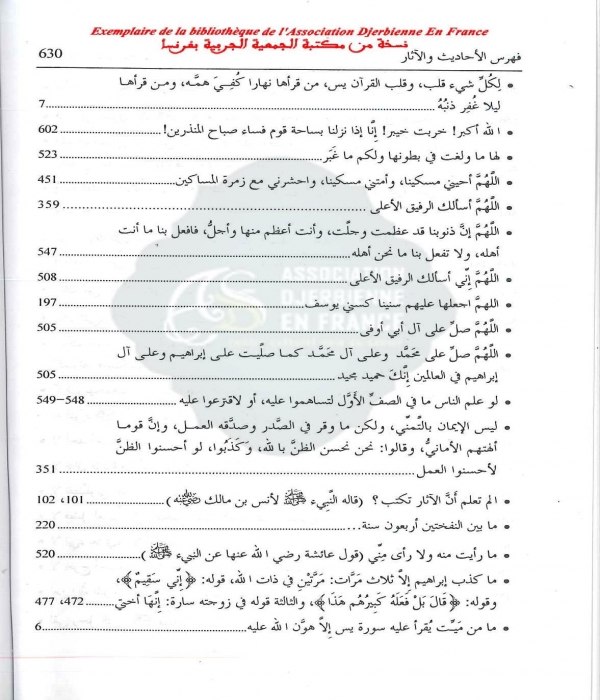 Exemplaire de la bibliothèque de l'Association Djerbienne En France
نسخة من مكتبة الجمعية الجربية بفرنسا
فهرس الأحاديث والآثار 630
• لِكُلِّ شيء قلب، وقلب القرآن يس، من قرأها نهارا كُفِيَ همَّه، ومن قرأها
ليلا غُفِر ذنبُهُ ........ 7
• الله أكبر! خربت خيبر! إِنَّا إذا نزلنا بساحة قوم فساء صباح المنذرين! ........ 602
• لها ما ولغت في بطونها ولكم ما غَبَر ........ 523
• اللَّهُمَّ أحيني مسكينا، وأمتني مسكينا، واحشرني مع زمرة المساكين ........ 451
• اللَّهُمَّ أسألك الرفيق الأعلى ........ 359
• اللَّهُمَّ إنَّ ذنوبنا قد عظمت وجلَّت، وأنت أعظم منها وأجلُّ، فافعل بنا ما أنت
أهله، ولا تفعل بنا ما نحن أهله ........ 547
• اللَّهُمَّ إنِّي أسألك الرفيق الأعلى ........ 508
• اللهمَّ اجعلها عليهم سنينا كسني يوسف ........ 197
• اللَّهُمَّ صلِّ على آل أبي أوفى ........ 505
• اللَّهُمَّ صلِّ على محمَّد وعلى آل محمَّد كما صلَّيت على إبراهيم وعلى آل
إبراهيم في العالمين إنَّكَ حميد مجيد ........ 505
• لو علم الناس ما في الصفِّ الأوَّل لتساهموا عليه، أو لاقترعوا عليه ........ 548–549
• ليس الإيمان بالتَّمنِّي، ولكن ما وقر في الصَّدر وصدَّقه العمـل، وإنَّ قوما
ألهتهم الأمانيُّ، وقالوا: نحن نحسن الظنَّ بالله، وكَذَبُوا، لو أحسنوا الظنَّ
لأحسنوا العمل ........ 351
• الم تعلم أنَّ الآثار تكتب؟ (قاله النَّبيء ﷺ لأنس بن مالك ﷺ) ........ 101، 102
• ما بين النفختين أربعون سنة ........ 220
• ما رأيت منه ولا رأى مِنِّي (قول عائشة رضي الله عنها عن النبيء ﷺ) ........ 520
• ما كذب إبراهيم إلاَّ ثلاث مرَّات: مرَّتَيْن في ذات الله، قوله: ﴿إِنِّي سَقِيمٌ﴾،
وقوله: ﴿قَالَ بَلْ فَعَلَهُ كَبِيرُهُمْ هَذَا﴾، والثالثة قوله في زوجته سارة: إنَّهَا أختي ........ 472، 477
• ما من مَيِّت يُقرأ عليه سورة يس إلاَّ هوَّن الله عليه ........ 6
ASSOCIATION
DJERBIENNE
EN FRANCE